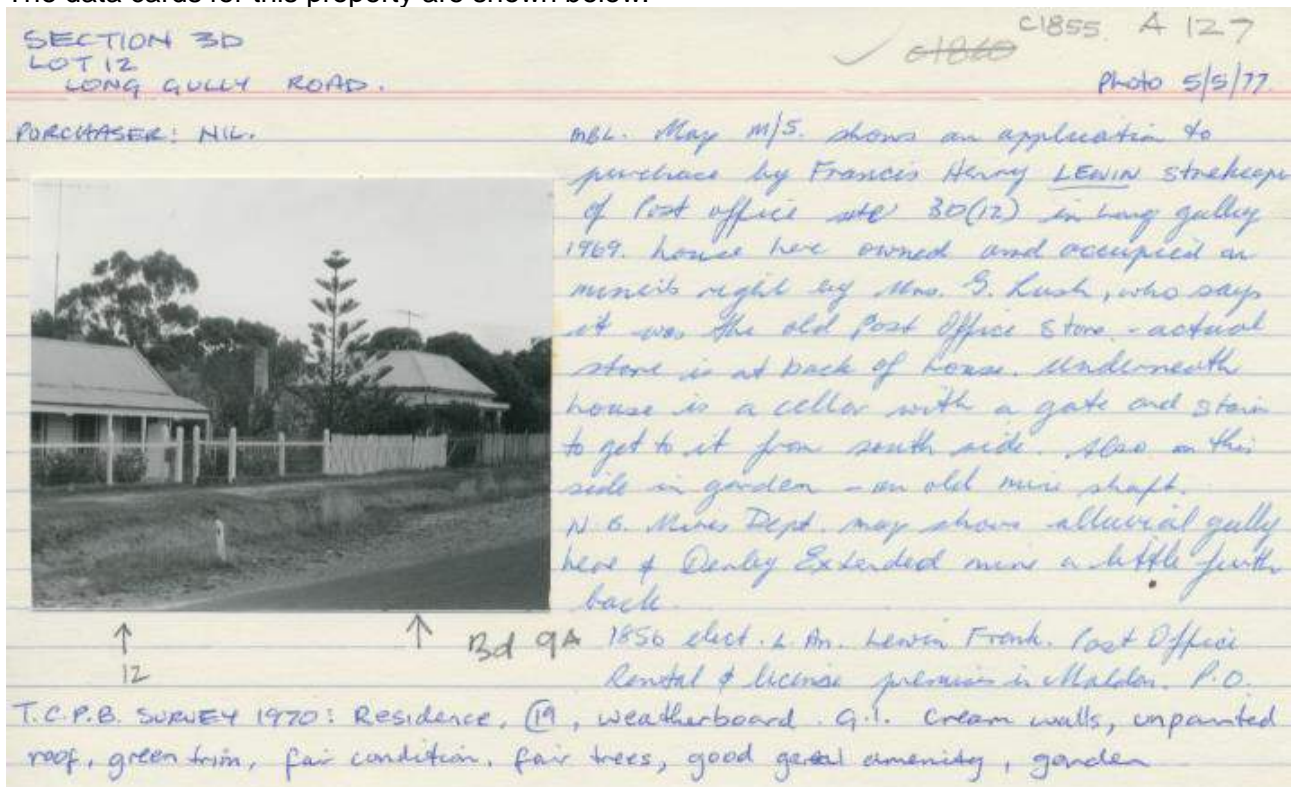 The data cards for this property are shown below:
SECTION 3D
LOT 12
LONG GULLY ROAD.
✓ c1860 c1855. A 127
Photo 5/5/77.
PURCHASER: NIL.
MBL. May M/S. shows an application to
purchase by Francis Henry LEWIN storekeeper
of Post office 3D(12) in Long gulley
1969. house here owned and occupied on
miner's right by Mrs. G. Lush, who says
it was the old Post Office Store - actual
store is at back of house. Underneath
house is a cellar with a gate and stairs
to get to it from south side. Also on this
side in garden - an old mine shaft.
N.B. Mines Dept. map shows alluvial gully
here & Derby Extended mine a little further
back.
↑
12
↑ Bd 9A
1856 elect. L. Lewin Frank. Post Office
Rental & license premises in Maldon. P.O.
T.C.P.B. SURVEY 1970: Residence, (19, weatherboard. G.I. cream walls, unpainted
roof, green trim, fair condition, fair trees, good amenity, garden